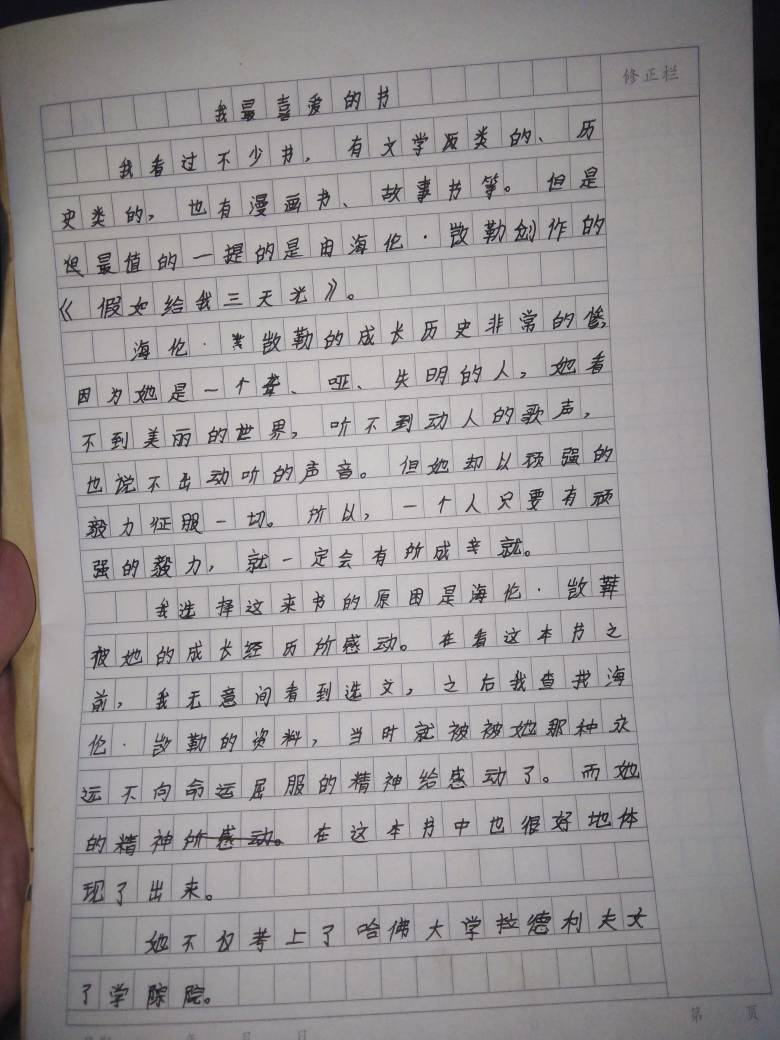 修正栏
我最喜爱的书
我看过不少书，有文学类的、历
史类的，也有漫画书、故事书等。但是
但最值的一提的是由海伦·凯勒创作的
《假如给我三天光》。
海伦·凯勒的成长历史非常的惨，
因为她是一个聋、哑、失明的人，她看
不到美丽的世界，听不到动人的歌声，
也说不出动听的声音。但她却以顽强的
毅力征服一切。所以，一个人只要有顽
强的毅力，就一定会有所成就。
我选择这来书的原因是海伦·凯
被她的成长经历所感动。在看这本书之
前，我无意间看到选文，之后我查找海
伦·凯勒的资料，当时就被被她那种永
远不向命运屈服的精神给感动了。而她
的精神所感动。在这本书中也很好地体
现了出来。
她不仅考上了哈佛大学拉德利夫文
了学院。
第 页
年 月 日